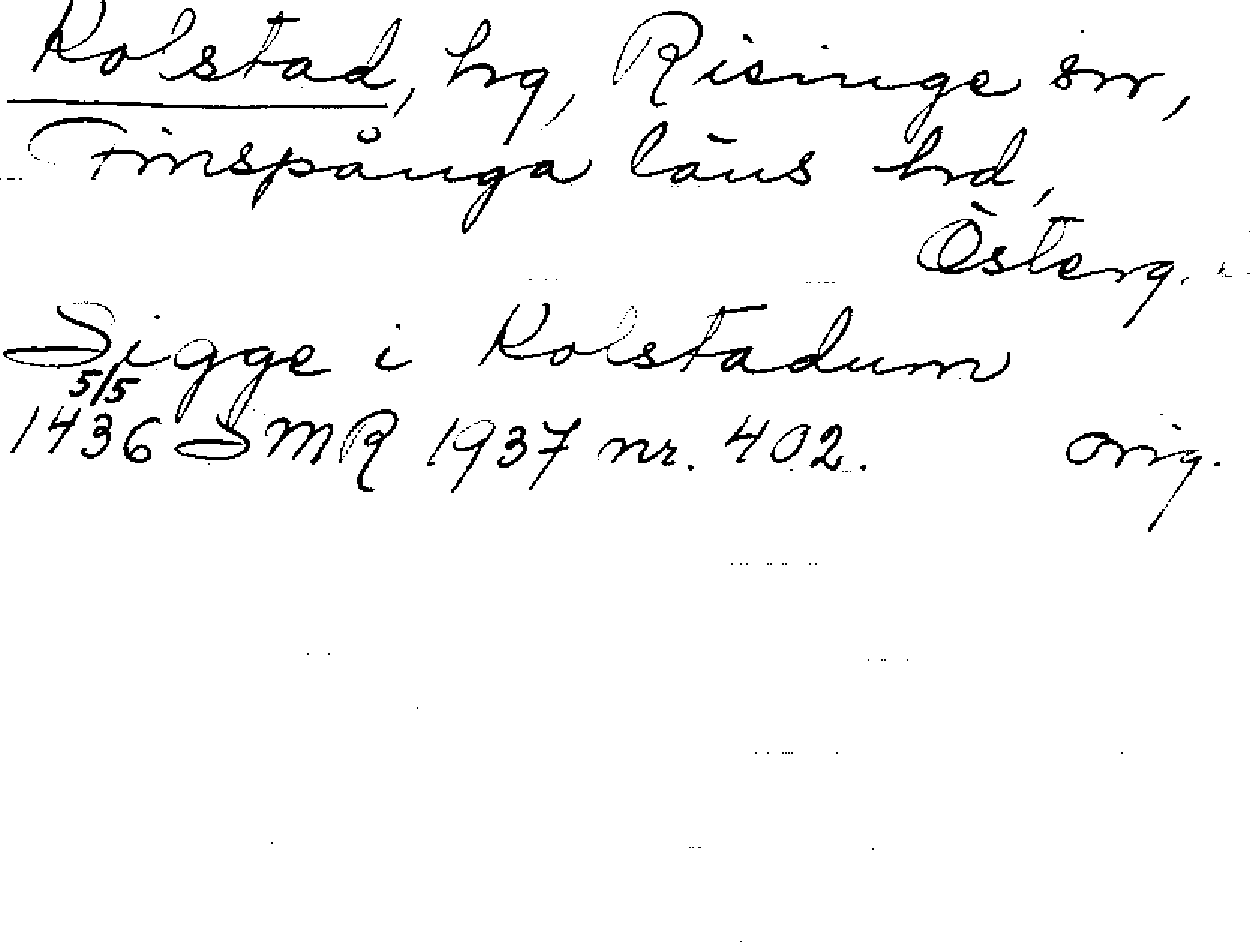 Kolstad, hg, Risinge sn,
Finspånga läns hd,
Österg.
Sigge i Kolstadum
5/5
1436 SMR 1937 nr. 402. orig.